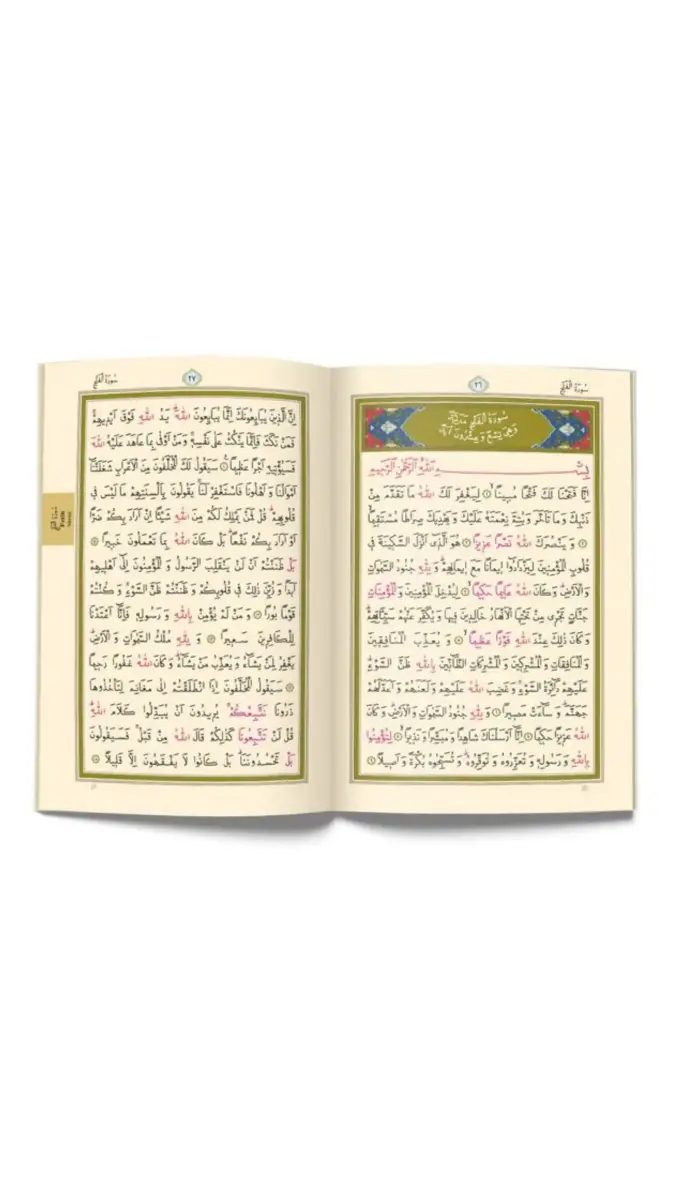 سُورَةُ الْفَتْحِ
٢٦
سُورَةُ الْفَتْحِ مَدَنِيَّةٌ
وَهِيَ تِسْعٌ وَعِشْرُونَ اٰيَةً
بِسْمِ اللّٰهِ الرَّحْمٰنِ الرَّحِيمِ
اِنَّا فَتَحْنَا لَكَ فَتْحًا مُبِينًا ۝١ لِيَغْفِرَ لَكَ اللّٰهُ مَا تَقَدَّمَ مِنْ
ذَنْبِكَ وَمَا تَاَخَّرَ وَيُتِمَّ نِعْمَتَهُ عَلَيْكَ وَيَهْدِيَكَ صِرَاطًا مُسْتَقِيمًا
۝٢ وَيَنْصُرَكَ اللّٰهُ نَصْرًا عَزِيزًا ۝٣ هُوَ الَّذِٓي اَنْزَلَ السَّكِينَةَ فِي
قُلُوبِ الْمُؤْمِنِينَ لِيَزْدَادُٓوا اِيمَانًا مَعَ اِيمَانِهِمْ وَلِلّٰهِ جُنُودُ السَّمٰوَاتِ
وَالْاَرْضِ وَكَانَ اللّٰهُ عَلِيمًا حَكِيمًا ۝٤ لِيُدْخِلَ الْمُؤْمِنِينَ وَالْمُؤْمِنَاتِ
جَنَّاتٍ تَجْرِي مِنْ تَحْتِهَا الْاَنْهَارُ خَالِدِينَ فِيهَا وَيُكَفِّرَ عَنْهُمْ سَيِّـَٔاتِهِمْ
وَكَانَ ذٰلِكَ عِنْدَ اللّٰهِ فَوْزًا عَظِيمًا ۝٥ وَيُعَذِّبَ الْمُنَافِقِينَ
وَالْمُنَافِقَاتِ وَالْمُشْرِكِينَ وَالْمُشْرِكَاتِ الظَّٓانِّينَ بِاللّٰهِ ظَنَّ السَّوْءِ
عَلَيْهِمْ دَٓائِرَةُ السَّوْءِ وَغَضِبَ اللّٰهُ عَلَيْهِمْ وَلَعَنَهُمْ وَاَعَدَّ لَهُمْ
جَهَنَّمَ وَسَٓاءَتْ مَصِيرًا ۝٦ وَلِلّٰهِ جُنُودُ السَّمٰوَاتِ وَالْاَرْضِ وَكَانَ
اللّٰهُ عَزِيزًا حَكِيمًا ۝٧ اِنَّٓا اَرْسَلْنَاكَ شَاهِدًا وَمُبَشِّرًا وَنَذِيرًا ۝٨ لِتُؤْمِنُوا
بِاللّٰهِ وَرَسُولِهِ وَتُعَزِّرُوهُ وَتُوَقِّرُوهُ وَتُسَبِّحُوهُ بُكْرَةً وَاَصِيلًا ۝٩
٢٧
سُورَةُ الْفَتْحِ
اِنَّ الَّذِينَ يُبَايِعُونَكَ اِنَّمَا يُبَايِعُونَ اللّٰهَ يَدُ اللّٰهِ فَوْقَ اَيْدِيهِمْ
فَمَنْ نَكَثَ فَاِنَّمَا يَنْكُثُ عَلٰى نَفْسِهِ وَمَنْ اَوْفٰى بِمَا عَاهَدَ عَلَيْهُ اللّٰهَ
فَسَيُؤْتِيهِ اَجْرًا عَظِيمًا ۝١٠ سَيَقُولُ لَكَ الْمُخَلَّفُونَ مِنَ الْاَعْرَابِ شَغَلَتْنَٓا
اَمْوَالُنَا وَاَهْلُونَا فَاسْتَغْفِرْ لَنَا يَقُولُونَ بِاَلْسِنَتِهِمْ مَا لَيْسَ فِي
قُلُوبِهِمْ قُلْ فَمَنْ يَمْلِكُ لَكُمْ مِنَ اللّٰهِ شَيْـًٔا اِنْ اَرَادَ بِكُمْ ضَرًّا
اَوْ اَرَادَ بِكُمْ نَفْعًا بَلْ كَانَ اللّٰهُ بِمَا تَعْمَلُونَ خَبِيرًا ۝١١
بَلْ ظَنَنْتُمْ اَنْ لَنْ يَنْقَلِبَ الرَّسُولُ وَالْمُؤْمِنُونَ اِلٰٓى اَهْلِيهِمْ
اَبَدًا وَزُيِّنَ ذٰلِكَ فِي قُلُوبِكُمْ وَظَنَنْتُمْ ظَنَّ السَّوْءِ وَكُنْتُمْ
قَوْمًا بُورًا ۝١٢ وَمَنْ لَمْ يُؤْمِنْ بِاللّٰهِ وَرَسُولِهِ فَاِنَّٓا اَعْتَدْنَا
لِلْكَافِرِينَ سَعِيرًا ۝١٣ وَلِلّٰهِ مُلْكُ السَّمٰوَاتِ وَالْاَرْضِ
يَغْفِرُ لِمَنْ يَشَٓاءُ وَيُعَذِّبُ مَنْ يَشَٓاءُ وَكَانَ اللّٰهُ غَفُورًا رَحِيمًا
۝١٤ سَيَقُولُ الْمُخَلَّفُونَ اِذَا انْطَلَقْتُمْ اِلٰى مَغَانِمَ لِتَأْخُذُوهَا
ذَرُونَا نَتَّبِعْكُمْ يُرِيدُونَ اَنْ يُبَدِّلُوا كَلَامَ اللّٰهِ
قُلْ لَنْ تَتَّبِعُونَا كَذٰلِكُمْ قَالَ اللّٰهُ مِنْ قَبْلُ فَسَيَقُولُونَ
بَلْ تَحْسُدُونَنَا بَلْ كَانُوا لَا يَفْقَهُونَ اِلَّا قَلِيلًا ۝١٥
سُورَةُ الْفَتْحِ
Fetih